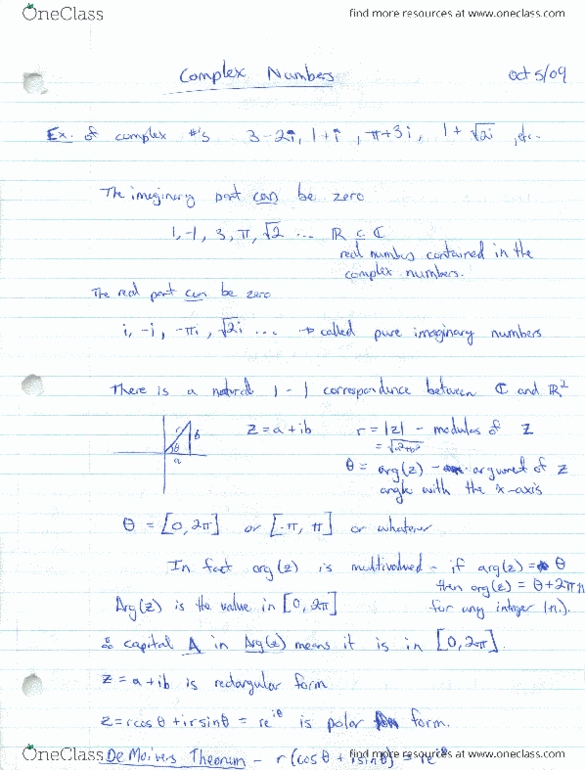 OneClass find more resources at www.oneclass.com
Complex Numbers Oct 5/09
Ex. of complex #'s 3-2i, 1+i, π+3i, 1+√2i, etc.
The imaginary part can be zero
1, -1, 3, π, √2 ... ℝ ⊆ ℂ
real numbers contained in the
complex numbers.
The real part can be zero
i, -i, -πi, √2i ... → called pure imaginary numbers
There is a natural 1-1 correspondence between ℂ and ℝ²
r b θ a
z = a+ib r = |z| - modulus of z
= √a²+b²
θ = arg(z) - argument of z
angle with the x-axis
θ = [0, 2π] or [-π, π] or whatever
In fact arg(z) is multivalued - if arg(z) = θ
then arg(z) = θ+2πn
for any integer (n).
Arg(z) is the value in [0, 2π]
∴ capital A in Arg(z) means it is in [0, 2π].
z = a+ib is rectangular form
z = rcosθ + irsinθ = re^iθ is polar form.
De Moivers Theorum - r(cosθ + isinθ) = re^iθ
OneClass find more resources at www.oneclass.com